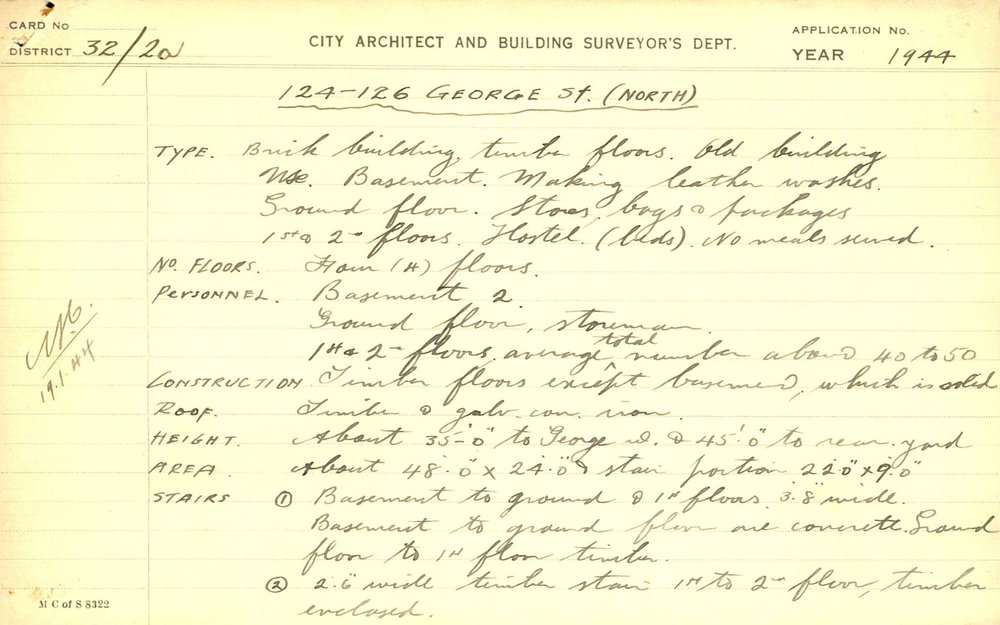 CARD No
DISTRICT 32/2a
CITY ARCHITECT AND BUILDING SURVEYOR'S DEPT.
APPLICATION No.
YEAR 1944
124-126 GEORGE St. (NORTH)
TYPE. Brick building, timber floors. Old building
Use. Basement. Making leather washes.
Ground floor. Stores, bags & packages
1st & 2nd floors. Hostel. (beds). No meals served.
No. FLOORS. Four (4) floors.
PERSONNEL. Basement 2.
Ground floor, storeman.
1st & 2nd floors, average total number about 40 to 50
CONSTRUCTION. Timber floors except basement, which is solid
ROOF. Timber & galv. corr. iron.
HEIGHT. About 35'-0" to George St. & 45'.0" to rear yard
AREA. About 48'.0" x 24'.0" & stair portion 22'0" x 9'.0"
STAIRS ① Basement to ground & 1st floors 3'.8" wide.
Basement to ground floor are concrete. Ground
floor to 1st floor timber.
② 2'.6" wide timber stair 1st to 2nd floor, timber
enclosed.
19.1.44
M C of S 8322